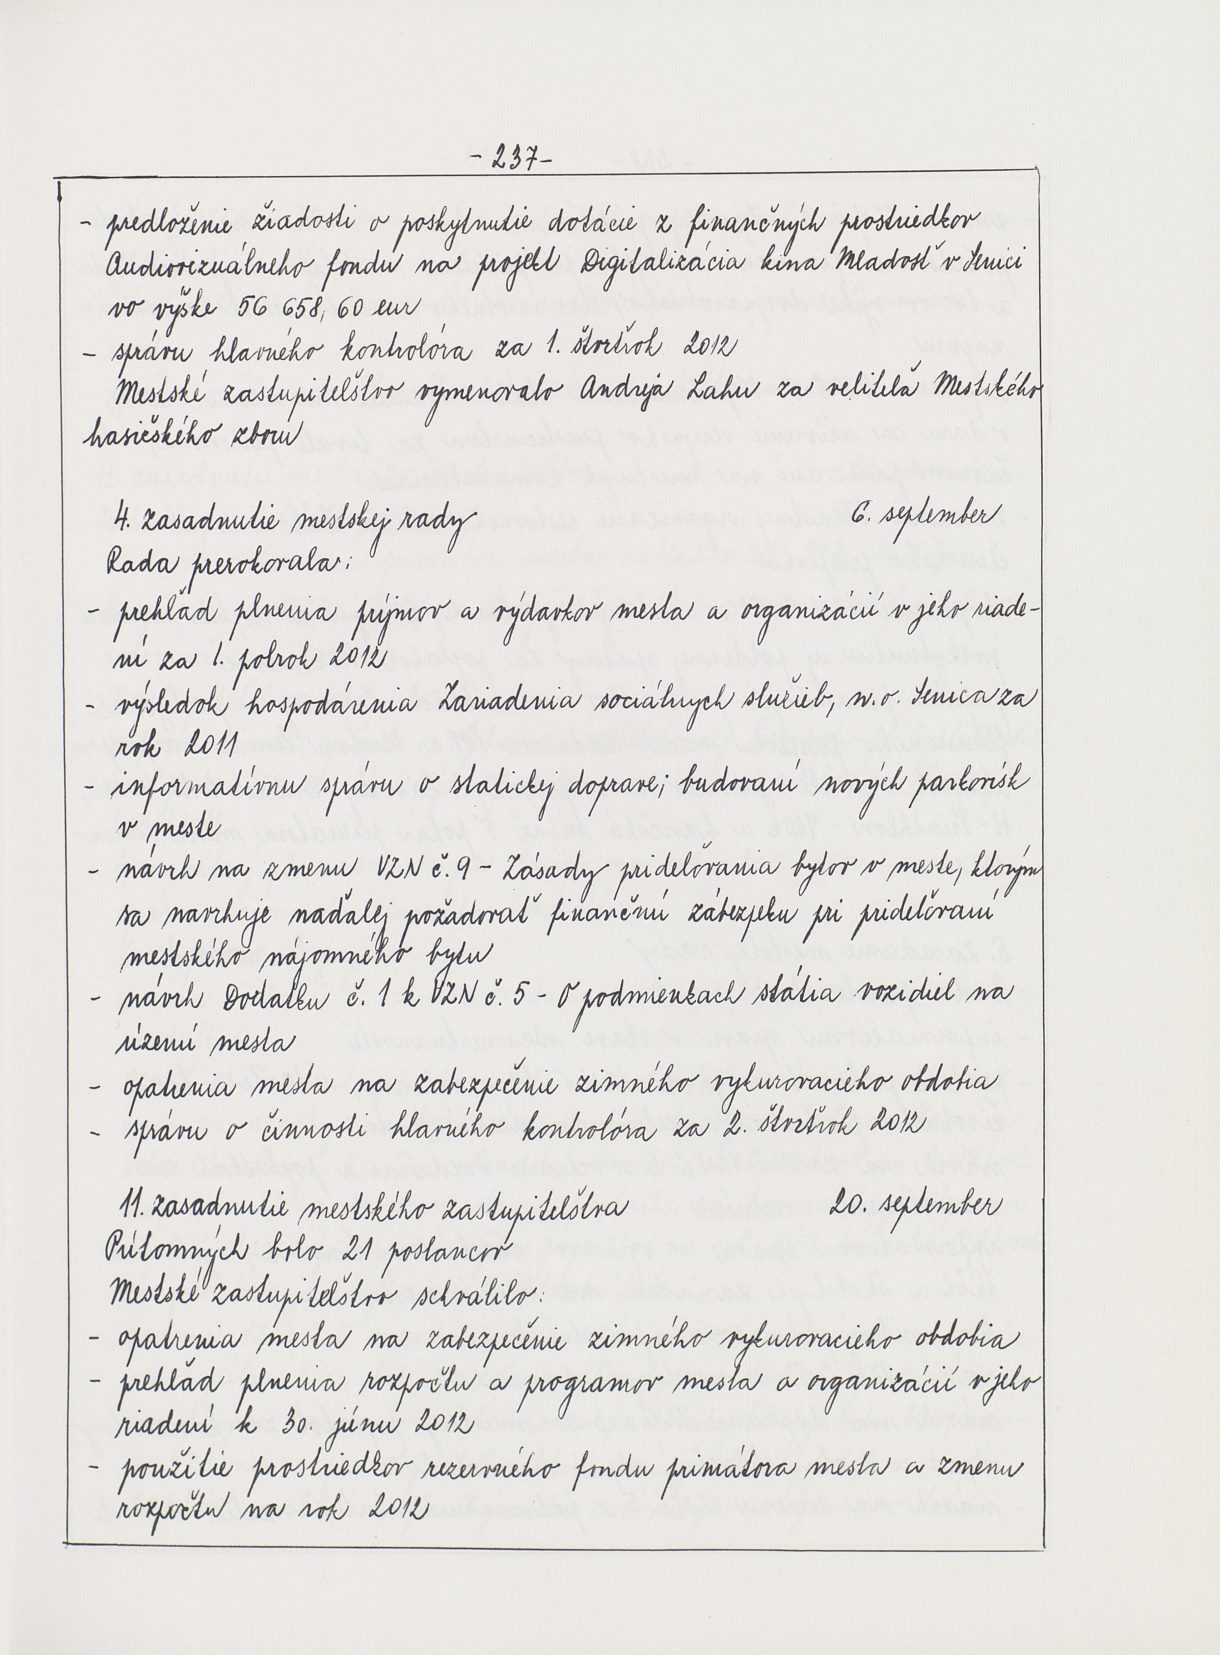 - 237 -
- predloženie žiadosti o poskytnutie dotácie z finančných prostriedkov
Audiovizuálneho fondu na projekt Digitalizácia kina Mladosť v Senici
vo výške 56 658,60 eur
- správu hlavného kontrolóra za 1. štvrťrok 2012
Mestské zastupiteľstvo vymenovalo Andreja Lahu za veliteľa Mestského
hasičského zboru
4. zasadnutie mestskej rady 6. september
Rada prerokovala:
- prehľad plnenia príjmov a výdavkov mesta a organizácií v jeho riade-
ní za 1. polrok 2012
- výsledok hospodárenia Zariadenia sociálnych služieb, n.o. Senica za
rok 2011
- informatívnu správu o statickej doprave; budovaní nových parkovísk
v meste
- návrh na zmenu VZN č. 9 - Zásady prideľovania bytov v meste, ktorým
sa navrhuje naďalej požadovať finančnú zábezpeku pri prideľovaní
mestského nájomného bytu
- návrh Dodatku č. 1 k VZN č. 5 - O podmienkach státia vozidiel na
území mesta
- opatrenia mesta na zabezpečenie zimného vykurovacieho obdobia
- správu o činnosti hlavného kontrolóra za 2. štvrťrok 2012
11. zasadnutie mestského zastupiteľstva 20. september
Prítomných bolo 21 poslancov
Mestské zastupiteľstvo schválilo:
- opatrenia mesta na zabezpečenie zimného vykurovacieho obdobia
- prehľad plnenia rozpočtu a programov mesta a organizácií v jeho
riadení k 30. júnu 2012
- použitie prostriedkov rezervného fondu primátora mesta a zmenu
rozpočtu na rok 2012